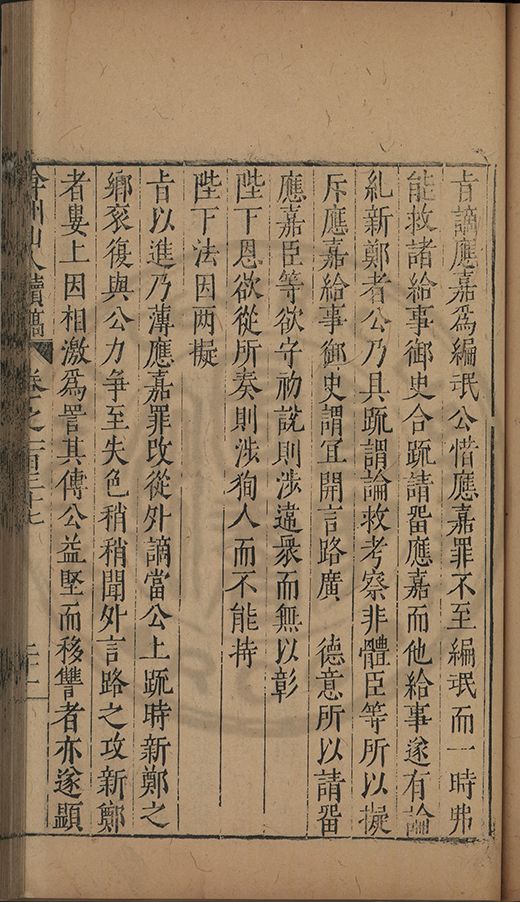 旨謫應嘉爲編珉公惜應嘉罪不至編珉而一時弗
能救諸給事御史合疏請畱應嘉而他給事遂有論
糺新鄭者公乃具疏謂論救考察非體臣等所以擬
斥應嘉給事御史謂宜開言路廣　德意所以請畱
應嘉臣等欲守初說則涉違衆而無以彰
陛下恩欲從所奏則涉狥人而不能持
陛下法因两擬
旨以進乃薄應嘉罪改從外謫當公上疏時新鄭之
鄉衮復與公力爭至失色稍稍聞外言路之攻新鄭
者婁上因相激爲詈其傳公益堅而移讐者亦遂顯
弇州山人續稿　卷之一百三十七